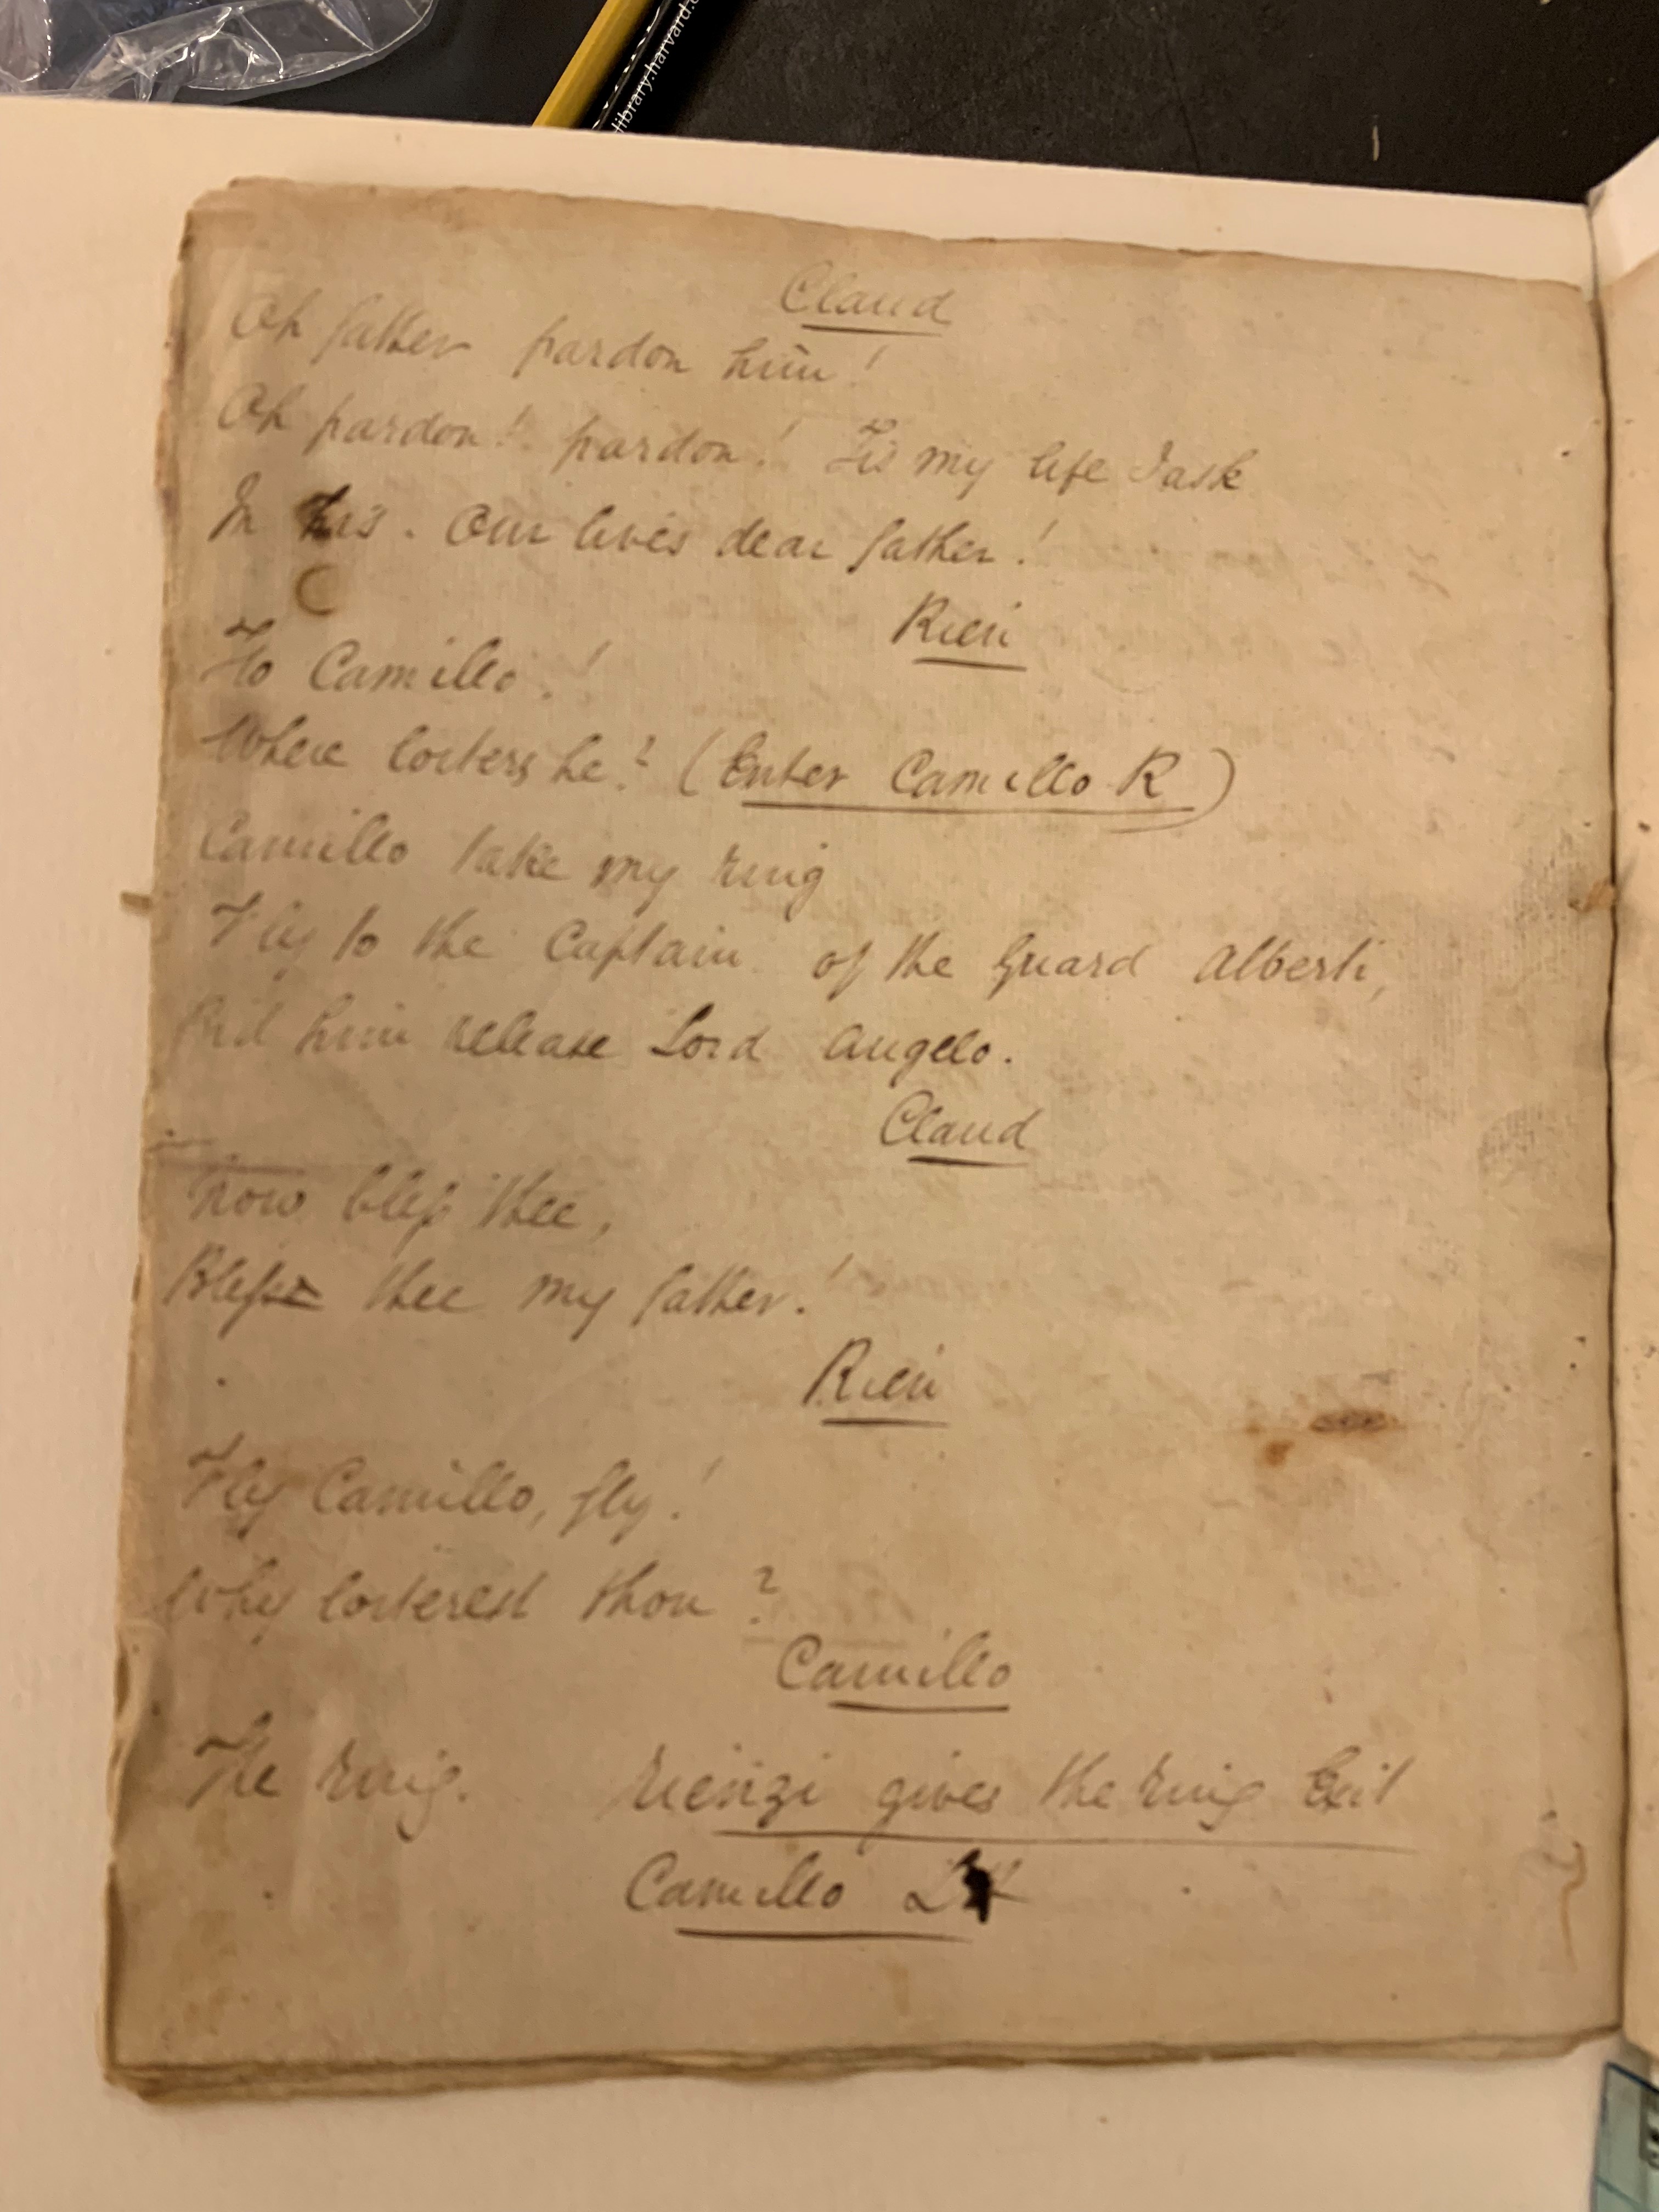 library.harvard.
Claud
Oh father pardon him!
Oh pardon! pardon! Tis my life I ask
In his. Our lives dear father!
Rien
Ho Camillo!
Where loiters he? (Enter Camillo R)
Camillo take my ring
Fly to the Captain of the Guard Alberti,
Bid him release Lord Angelo.
Claud
Now bless thee,
Bless thee my father!
Rien
Fly Camillo, fly!
Why loiterest thou?
Camillo
The ring. Rienzi gives the ring Exit
Camillo